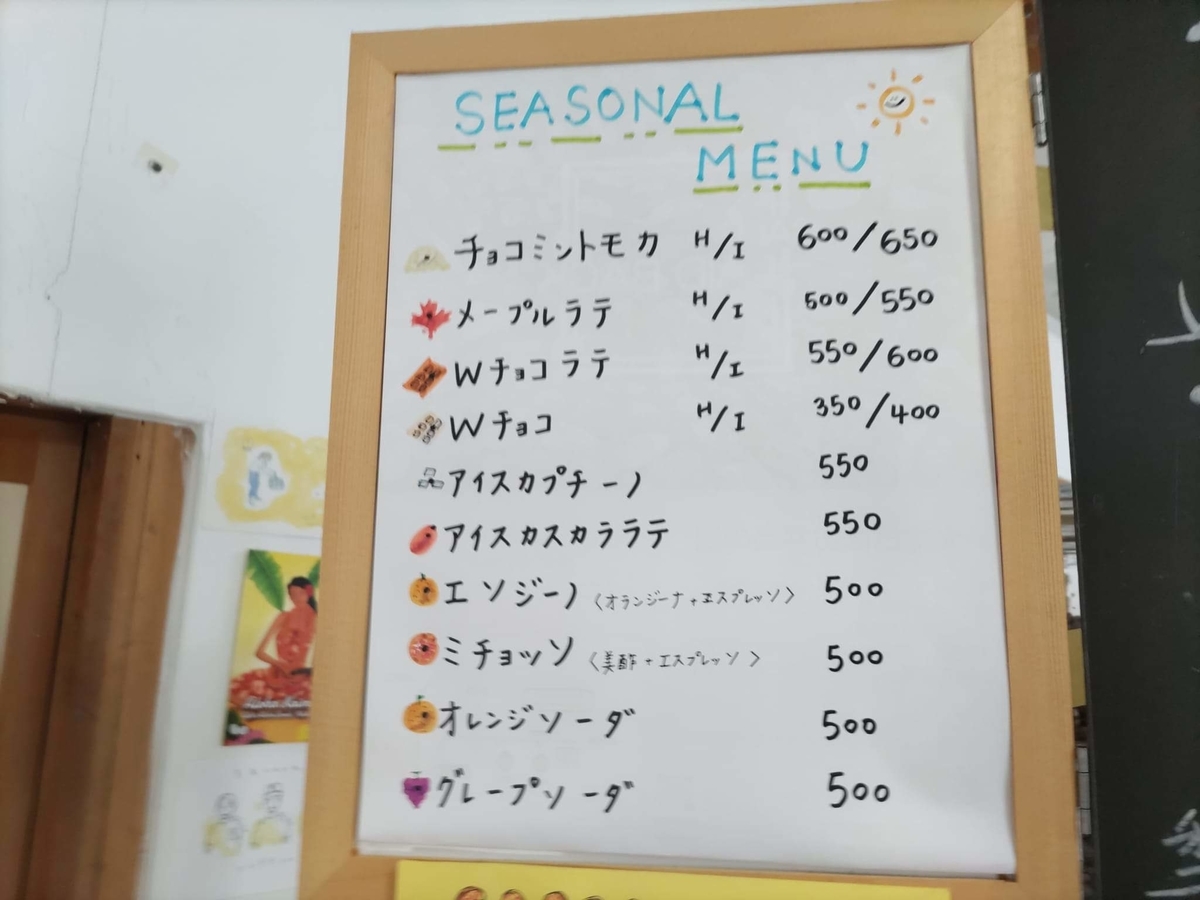 SEASONAL
MENU
チョコミントモカ H/I 600/650
メープルラテ H/I 500/550
Wチョコラテ H/I 550/600
Wチョコ H/I 350/400
アイスカプチーノ 550
アイスカスカララテ 550
エソジーノ〈オランジーナ+エスプレッソ〉 500
ミチョッソ〈美酢+エスプレッソ〉 500
オレンジソーダ 500
グレープソーダ 500